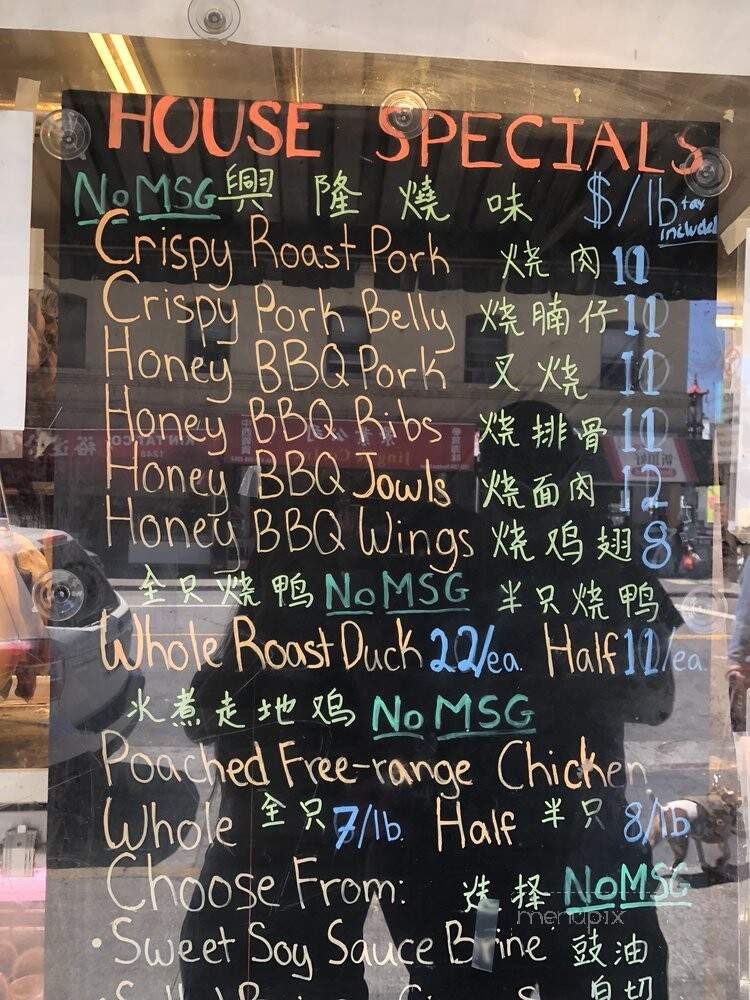 HOUSE SPECIALS
No MSG 興 隆 燒 味 $/lb tax included
Crispy Roast Pork 烧肉 11
Crispy Pork Belly 烧腩仔 11
Honey BBQ Pork 叉烧 11
Honey BBQ Ribs 烧排骨 11
Honey BBQ Jowls 烧面肉 12
Honey BBQ Wings 烧鸡翅 8
全只烧鸭 No MSG 半只烧鸭
Whole Roast Duck 22/ea. Half 11/ea.
水煮走地鸡 No MSG
Poached Free-range Chicken
Whole 全只 7/lb. Half 半只 8/lb
Choose From: 选择 No MSG
• Sweet Soy Sauce Brine 豉油
menupix